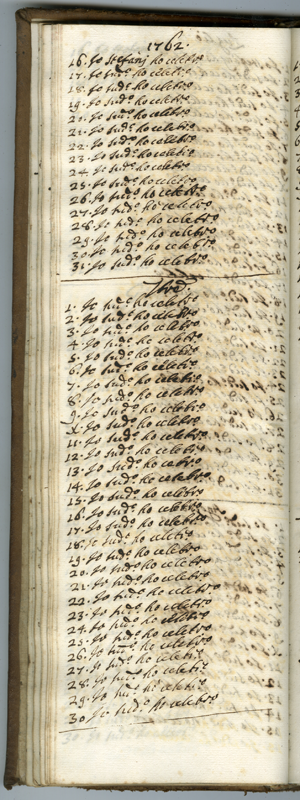 1762.
16. Io Stefanj ho celebro
17. Io sud.o ho celebro
18. Io sud.o ho celebro
19. Io sud.o ho celebro
20. Io sud.o ho celebro
21. Io sud.o ho celebro
22. Io sud.o ho celebro
23. Io sud.o ho celebro
24. Io sud.o ho celebro
25. Io sud.o ho celebro
26. Io sud.o ho celebro
27. Io sud.o ho celebro
28. Io sud.o ho celebro
29. Io sud.o ho celebro
30. Io sud.o ho celebro
31. Io sud.o ho celebro
1. Io sud.o ho celebro
2. Io sud.o ho celebro
3. Io sud.o ho celebro
4. Io sud.o ho celebro
5. Io sud.o ho celebro
6. Io sud.o ho celebro
7. Io sud.o ho celebro
8. Io sud.o ho celebro
9. Io sud.o ho celebro
X. Io sud.o ho celebro
11. Io sud.o ho celebro
12. Io sud.o ho celebro
13. Io sud.o ho celebro
14. Io sud.o ho celebro
15. Io sud.o ho celebro
16. Io sud.o ho celebro
17. Io sud.o ho celebro
18. Io sud.o ho celebro
19. Io sud.o ho celebro
20. Io sud.o ho celebro
21. Io sud.o ho celebro
22. Io sud.o ho celebro
23. Io sud.o ho celebro
24. Io sud.o ho celebro
25. Io sud.o ho celebro
26. Io sud.o ho celebro
27. Io sud.o ho celebro
28. Io sud.o ho celebro
29. Io sud.o ho celebro
30 Io sud.o ho celebro